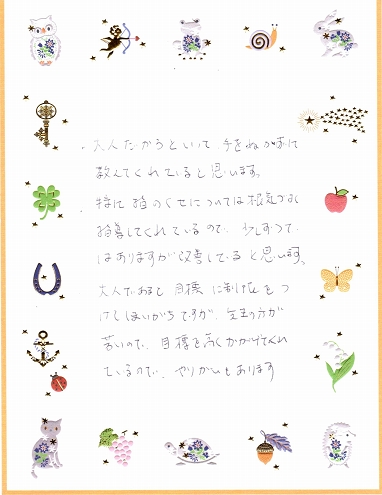 ・大人だからといって 手をぬかずに
教えてくれていると思います。
特に指のくせについては根気づよく
指導してくれているので、少しずつで
はありますが改善していると思います。
大人であると目標に制限をつ
けてしまいがちですが、先生の方が
若いので、目標を高くかかげてくれ
ているので、やりがいもあります